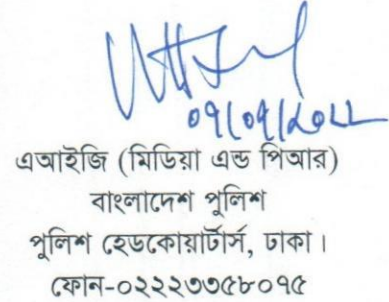 ০৭/০৭/২০২২
এআইজি (মিডিয়া এন্ড পিআর)
বাংলাদেশ পুলিশ
পুলিশ হেডকোয়ার্টার্স, ঢাকা।
ফোন-০২২২৩৩৫৮০৭৫